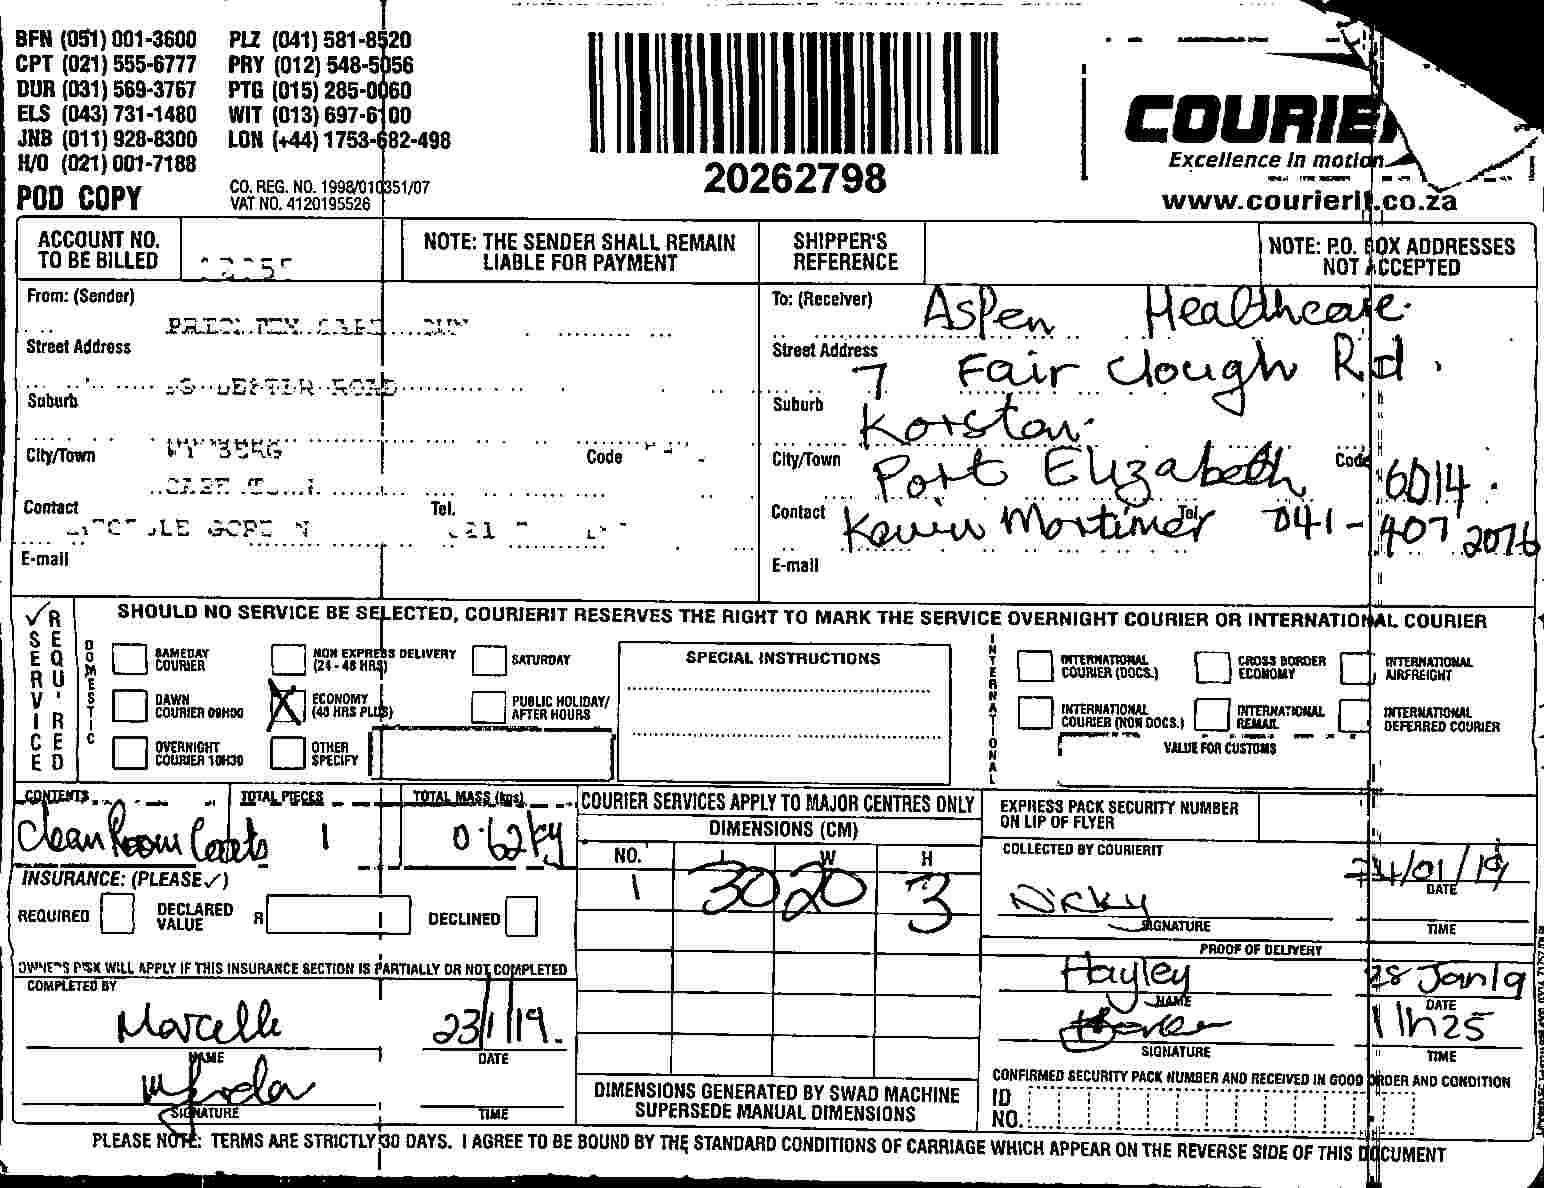 BFN (051) 001-3600 PLZ (041) 581-8520
CPT (021) 555-6777 PRY (012) 548-5056
DUR (031) 569-3767 PTG (015) 285-0060
ELS (043) 731-1480 WIT (013) 697-6100
JNB (011) 928-8300 LON (+44) 1753-682-498
H/O (021) 001-7188
POD COPY
CO. REG. NO. 1998/010351/07
VAT NO. 4120195526
20262798
COURIE
Excellence in motion
www.courierit.co.za
ACCOUNT NO. TO BE BILLED
NOTE: THE SENDER SHALL REMAIN LIABLE FOR PAYMENT
SHIPPER'S REFERENCE
NOTE: P.O. BOX ADDRESSES NOT ACCEPTED
From: (Sender)
Street Address
ROAD
Suburb
City/Town
Code
Contact
Tel.
E-mail
To: (Receiver) Aspen Healthcare
Street Address 7 Fair Clough Rd.
Suburb Korsten
City/Town Port Elizabeth Code 6014
Contact Kevin Mortimer Tel. 041-407 2076
E-mail
SERVICE REQUIRED
SHOULD NO SERVICE BE SELECTED, COURIERIT RESERVES THE RIGHT TO MARK THE SERVICE OVERNIGHT COURIER OR INTERNATIONAL COURIER
DOMESTIC
SAMEDAY COURIER
NON EXPRESS DELIVERY (24 - 48 HRS)
SATURDAY
DAWN COURIER 09H00
X ECONOMY (48 HRS PLUS)
PUBLIC HOLIDAY/ AFTER HOURS
OVERNIGHT COURIER 10H30
OTHER SPECIFY
SPECIAL INSTRUCTIONS
INTERNATIONAL
INTERNATIONAL COURIER (DOCS.)
CROSS BORDER ECONOMY
INTERNATIONAL AIRFREIGHT
INTERNATIONAL COURIER (NON DOCS.)
INTERNATIONAL REMAIL
INTERNATIONAL DEFERRED COURIER
VALUE FOR CUSTOMS
CONTENTS TOTAL PIECES TOTAL MASS (kgs)
Clean Room Coats 1 0.62kg
INSURANCE: (PLEASE ✓)
REQUIRED DECLARED VALUE R DECLINED
OWNER'S RISK WILL APPLY IF THIS INSURANCE SECTION IS PARTIALLY OR NOT COMPLETED
COMPLETED BY
Marcelle 23/1/19.
NAME DATE
SIGNATURE TIME
COURIER SERVICES APPLY TO MAJOR CENTRES ONLY
DIMENSIONS (CM)
NO. L W H
1 30 20 3
DIMENSIONS GENERATED BY SWAD MACHINE SUPERSEDE MANUAL DIMENSIONS
EXPRESS PACK SECURITY NUMBER ON LIP OF FLYER
COLLECTED BY COURIERIT
Nicky 24/01/19
SIGNATURE DATE
TIME
PROOF OF DELIVERY
Hayley 28 Jan 19
NAME DATE
11h25
SIGNATURE TIME
CONFIRMED SECURITY PACK NUMBER AND RECEIVED IN GOOD ORDER AND CONDITION
ID NO.
PLEASE NOTE: TERMS ARE STRICTLY 30 DAYS. I AGREE TO BE BOUND BY THE STANDARD CONDITIONS OF CARRIAGE WHICH APPEAR ON THE REVERSE SIDE OF THIS DOCUMENT